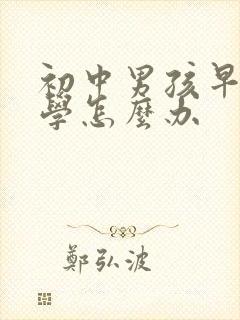 初中男孩早
學怎麼办
鄭弘波